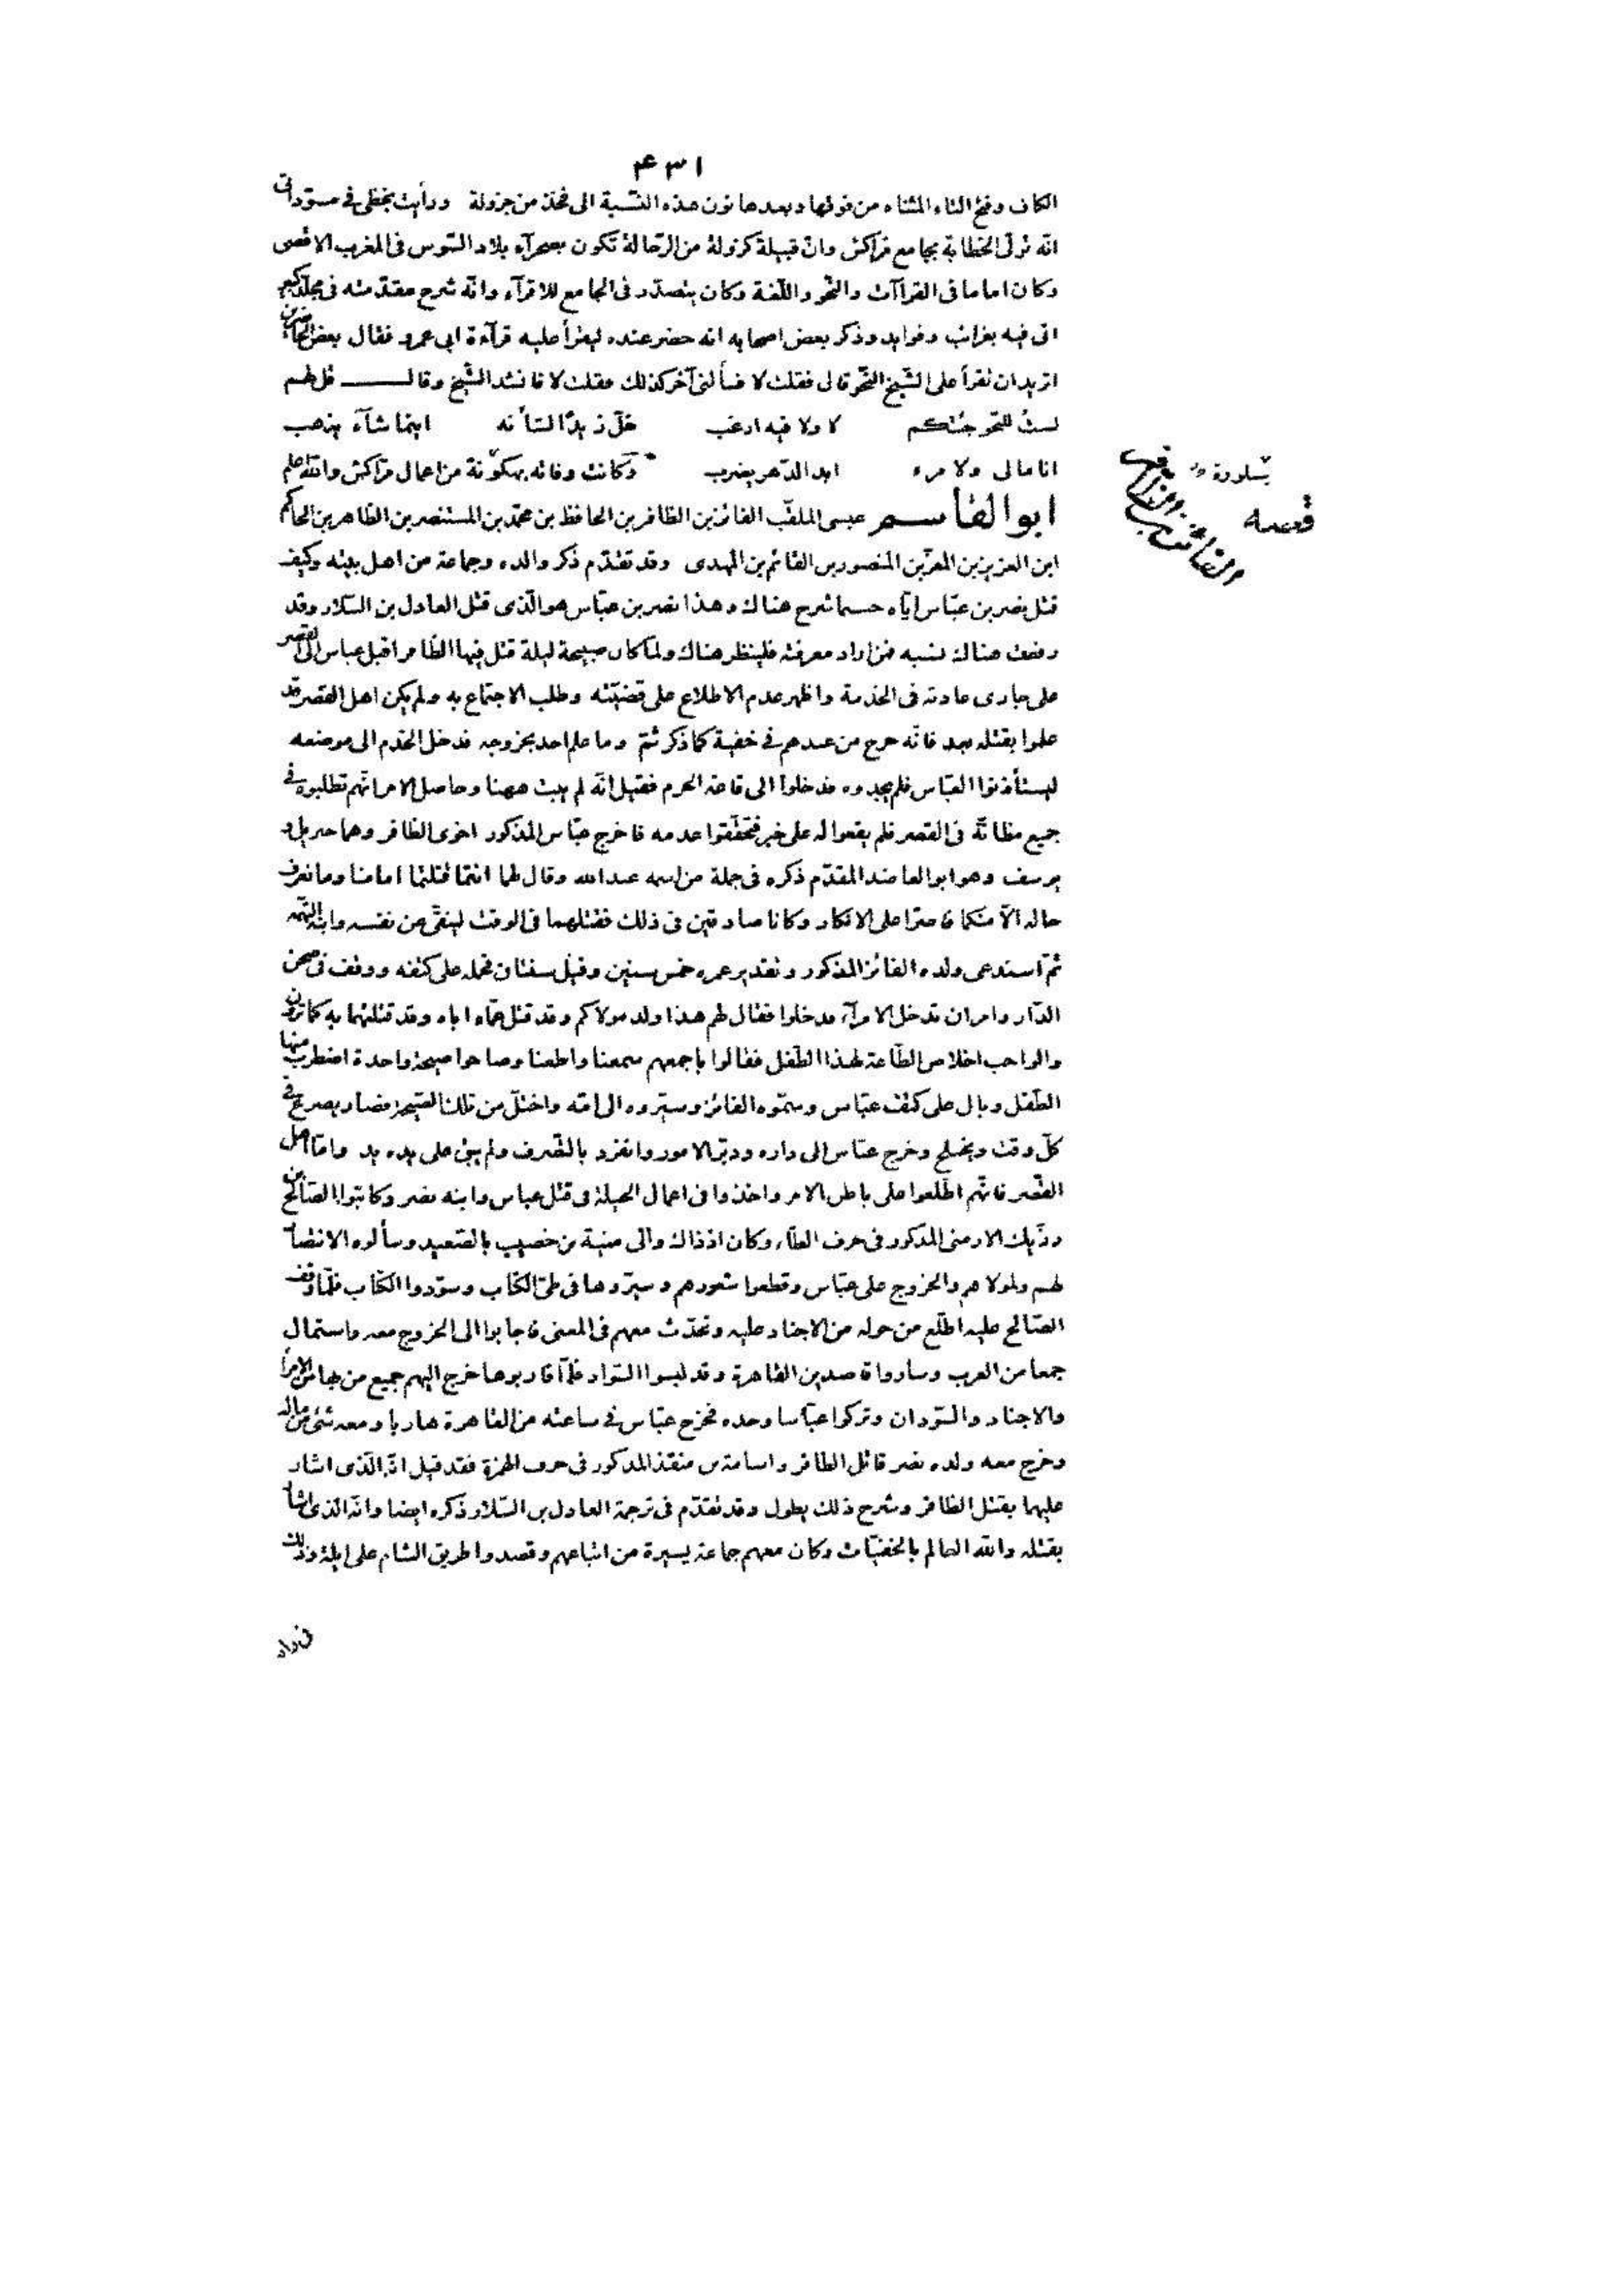 ۴۳۱
الكاف وفتح التاء المثناه من فوقها وبعدها نون هذه النسبة الى فخذ من جزولة ورأيت بخطى فى مسوّداتى
انّه تولّى الخطابة بجامع مراكش وانّ قبيلة كزولة من الرحّالة تكون بصحرآء بلاد السّوس فى المغرب الاقصى
وكان اماما فى القراآت والنّحو واللّغة وكان يتصدّر فى الجامع للاقرآء وانّه شرح مقدّمته فى مجلّد كبير
اتى فيه بغرائب وفوايد وذكر بعض اصحابه انه حضر عنده ليقرأ عليه قرآءة ابى عمرو فقال بعض الحاضرين
اتريدان تقرأ على الشّيخ النّحو قال فقلت لا فسألنى آخر كذلك فقلت لا فانشد الشّيخ وقال قل لهم
لست للنّحو جئتكم لا ولا فيه ارغب خلّ زيدًا لشأنه اينما شآء يذهب
انا مالى ولامرء ابد الدّهر يضرب وكانت وفاته بهكوّنة من اعمال مرّاكش والله اعلم
ابوالقاسم عيسى الملقّب الفائز بن الظافر بن الحافظ بن محمّد بن المستنصر بن الظاهر بن الحاكم
ابن العزيز بن المعزّ بن المنصور بن القائم بن المهدى وقد تقدّم ذكر والده وجماعة من اهل بيته وكيف
قتل نصر بن عبّاس ايّاه حسما شرح هناك وهذا نصر بن عبّاس هو الّذى قتل العادل بن السّلار وقد
رفعت هناك نسبه فمن اراد معرفته فلينظر هناك ولمّا كان صبيحة ليلة قتل فيها الظّافر اقبل عباس الى القصر
على جارى عادته فى الخذمة واظهر عدم الاطلاع على قضيّته وطلب الاجتماع به ولم يكن اهل القصر قد
علموا بقتله بعد فانّه خرج من عندهم فى خفية كما ذكر ثمّ وما علم احد بخروجه فدخل الخدم الى موضعه
ليستأذنوا العبّاس فلم يجدوه فدخلوا الى قاعة الحرم فقيل انّه لم يبت ههنا وحاصل الامر انّهم تطلّبوه فى
جميع مظانّه فى القصر فلم يقعوا له على خبر فتحقّقوا عدمه فاخرج عبّاس المذكور اخوى الظافر وهما جبريل و
يوسف وهو ابو العاضد المقدّم ذكره فى جملة من اسمه عبد الله وقال لهما انتما قتلتما امامنا وما نعرف
حاله الّا منكما فاصرّا على الانكار وكانا صادقين فى ذلك فقتلهما فى الوقت لينفى عن نفسه وابنه التّهمة
ثمّ استدعى ولده الفائز المذكور وتقدير عمره خمس سنين وقيل سنتان فحمله على كتفه ووقف فى صحن
الدّار وامر ان تدخل الامرآء فدخلوا فقال لهم هذا ولد مولاكم وقد قتل عمّاه اباه وقد قتلتهما به كما ترون
والواجب اخلاص الطّاعة لهذا الطّفل فقالوا باجمعهم سمعنا واطعنا وصاحوا صيحة واحدة اضطرب منها
الطّفل وبال على كتف عبّاس وسمّوه الفائز وسيّروه الى امّه واختلّ من تلك الصّيحة فصار يصرع فى
كلّ وقت ويختلج وخرج عبّاس الى داره ودبّر الامور وانفرد بالتّصرف ولم يبق على يده يد وامّا اهل
القصر فانّهم اطّلعوا على باطن الامر واخذوا فى اعمال الحيلة فى قتل عباس وابنه نصر وكاتبوا الصّالح بن
رزّيك الارمنى المذكور فى حرف الطّاء وكان اذذاك والى منية بن خصيب بالصّعيد وسألوه الانتصار
لهم ولمولاهم والخروج على عبّاس وقطعوا شعورهم وسيّروها فى طىّ الكتاب وسوّدوا الكتاب فلمّا وقف
الصّالح عليه اطّلع من حوله من الاجناد عليه وتحدّث معهم فى المعنى فاجابوا الى الخروج معه واستمال
جمعا من العرب وساروا قاصدين القاهرة وقد لبسوا السّواد فلمّا قاربوها خرج اليهم جميع من بها من الامرآء
والاجناد والسّودان وتركوا عبّاسا وحده فخرج عبّاس فى ساعته من القاهرة هاربا ومعه شئ من ماله
وخرج معه ولده نصر قاتل الظافر واسامة بن منقذ المذكور فى حرف الهمزة فقد قيل انّه الّذى اشار
عليهما بقتل الظافر وشرح ذلك يطول وقد تقدّم فى ترجمة العادل بن السّلار ذكره ايضا وانّه الّذى اشار
بقتله والله العالم بالخفيّات وكان معهم جماعة يسيرة من اتباعهم وقصدوا طريق الشام على ايلة وذلك
قصه